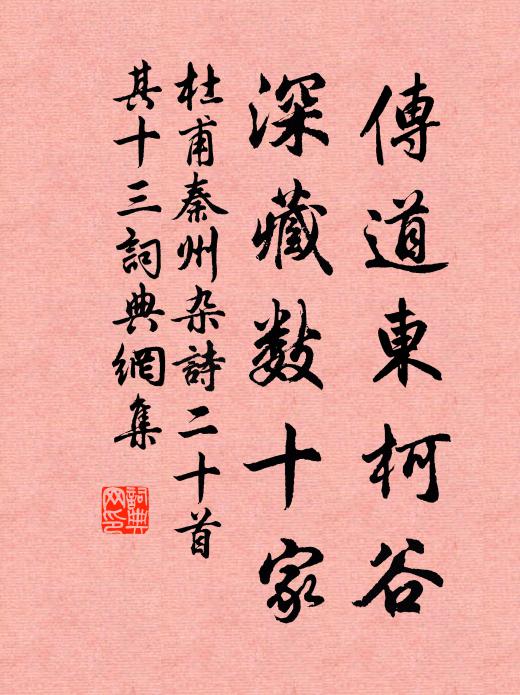 傳道東柯谷
深藏數十家
杜甫秦州杂詩二十首
其十三詞典網集
詞典
网印